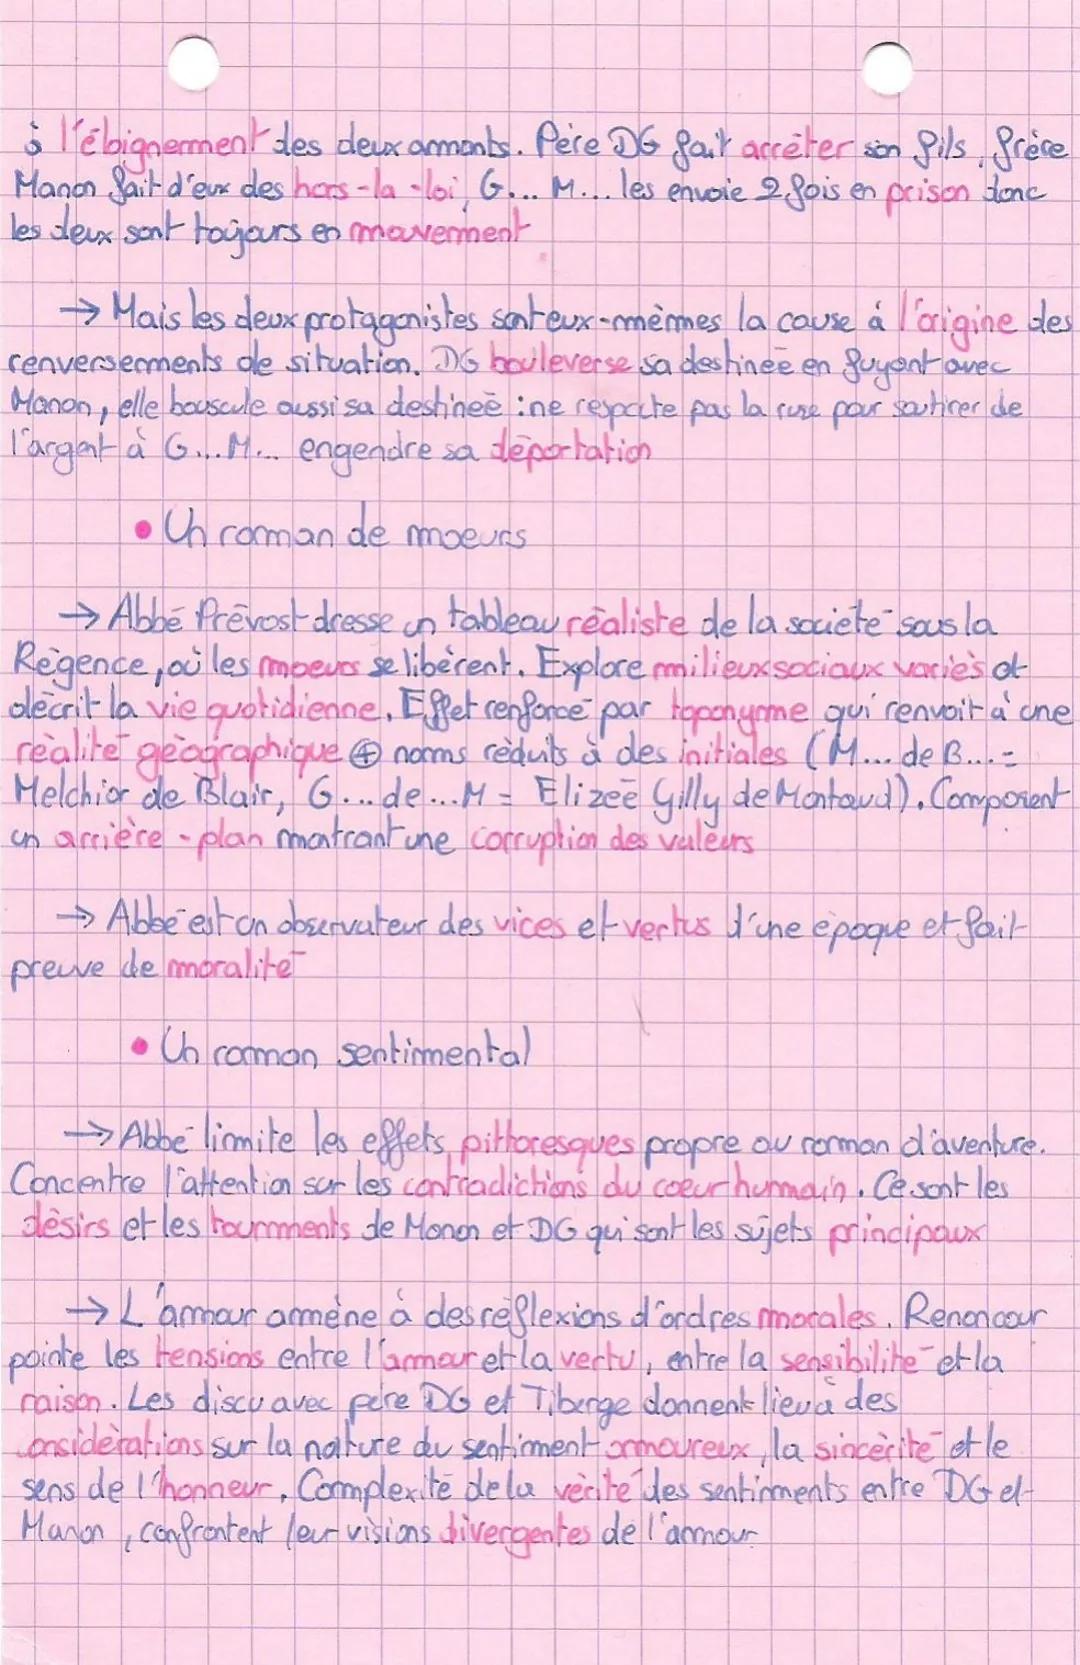 à l'éloignement des deux amants. Père DG fait arrêter son fils, frère
Manon fait d'eux des hors-la-loi, G... M... les envoie 2 fois en prison donc
les deux sont toujours en mouvement
→ Mais les deux protagonistes sont eux-mêmes la cause à l'origine des
renversements de situation. DG bouleverse sa destinée en fuyant avec
Manon, elle bouscule aussi sa destinée : ne respecte pas la ruse pour soutirer de
l'argent à G... M... engendre sa déportation
• Un roman de moeurs
→ Abbé Prévost dresse un tableau réaliste de la société sous la
Régence, où les moeurs se libèrent. Explore milieux sociaux variés et
décrit la vie quotidienne. Effet renforcé par toponyme qui renvoit à une
réalité géographique ⊕ noms réduits à des initiales (M... de B... =
Melchior de Blair, G... de ... M = Elizée Gilly de Montaud). Composent
un arrière-plan montrant une corruption des valeurs
→ Abbé est un observateur des vices et vertus d'une époque et fait
preuve de moralité
• Un roman sentimental
→ Abbé limite les effets pittoresques propre au roman d'aventure.
Concentre l'attention sur les contradictions du coeur humain. Ce sont les
désirs et les tourments de Manon et DG qui sont les sujets principaux
→ L'amour amène à des réflexions d'ordres morales. Renoncour
pointe les tensions entre l'amour et la vertu, entre la sensibilité et la
raison. Les discu avec père DG et Tiberge donnent lieu à des
considérations sur la nature du sentiment amoureux, la sincérité et le
sens de l'honneur. Complexité de la vérité des sentiments entre DG et
Manon, confrontent leur visions divergentes de l'amour